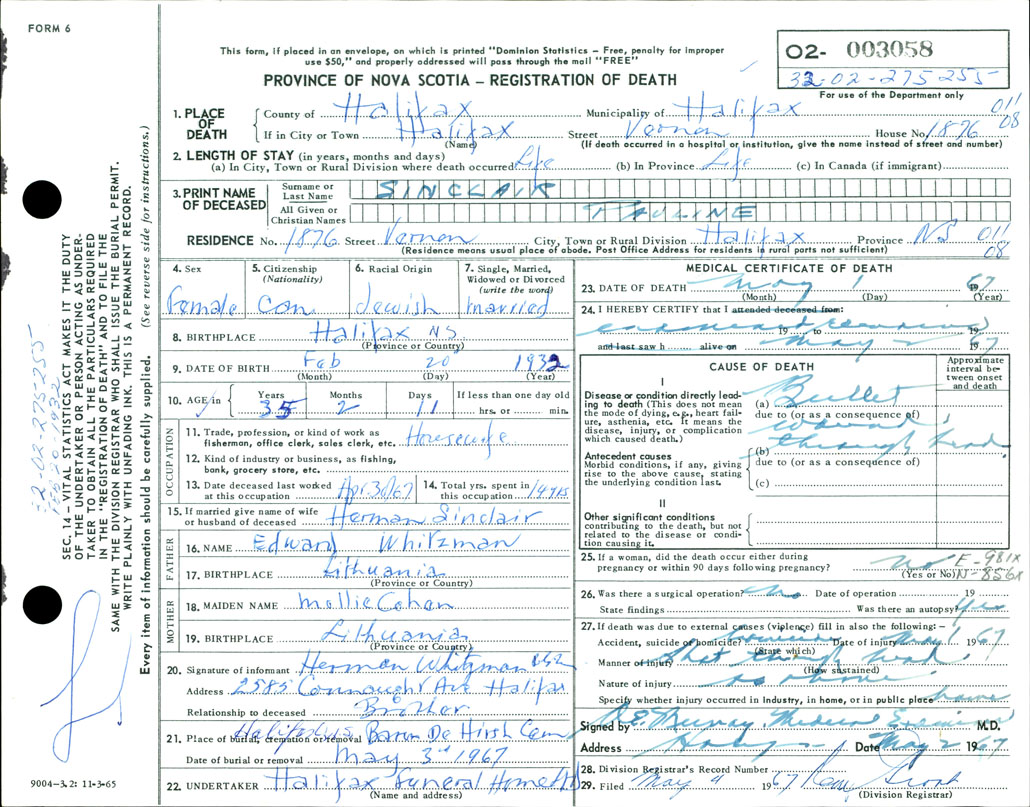 FORM 6
This form, if placed in an envelope, on which is printed "Dominion Statistics – Free, penalty for improper
use $50," and properly addressed will pass through the mail "FREE"
PROVINCE OF NOVA SCOTIA – REGISTRATION OF DEATH
02- 003058
32-02-275255
For use of the Department only
1. PLACE OF DEATH
County of Halifax Municipality of Halifax 011
If in City or Town Halifax Street Vernon House No. 1876 08
(Name) (If death occurred in a hospital or institution, give the name instead of street and number)
2. LENGTH OF STAY (in years, months and days)
(a) In City, Town or Rural Division where death occurred Life (b) In Province Life (c) In Canada (if immigrant)
3. PRINT NAME OF DECEASED
Surname or Last Name SINCLAIR
All Given or Christian Names PAULINE
RESIDENCE No. 1876 Street Vernon City, Town or Rural Division Halifax Province NS 011
(Residence means usual place of abode. Post Office Address for residents in rural parts not sufficient) 08
4. Sex Female
5. Citizenship (Nationality) Can
6. Racial Origin Jewish
7. Single, Married, Widowed or Divorced (write the word) married
8. BIRTHPLACE Halifax NS
(Province or Country)
9. DATE OF BIRTH Feb 20 1932
(Month) (Day) (Year)
10. AGE in Years 35 Months 2 Days 11 If less than one day old
hrs. or min.
OCCUPATION
11. Trade, profession, or kind of work as
fisherman, office clerk, sales clerk, etc. Housewife
12. Kind of industry or business, as fishing,
bank, grocery store, etc.
13. Date deceased last worked
at this occupation Apr. 30/67
14. Total yrs. spent in
this occupation 14 yrs
15. If married give name of wife
or husband of deceased Herman Sinclair
FATHER
16. NAME Edward Whitzman
17. BIRTHPLACE Lithuania
(Province or Country)
MOTHER
18. MAIDEN NAME Mollie Cohen
19. BIRTHPLACE Lithuania
(Province or Country)
20. Signature of informant Herman Whitzman
Address 2585 Connaught Ave Halifax
Relationship to deceased Brother
21. Place of burial, cremation or removal Halifax Baron De Hirsh Cem
Date of burial or removal May 3rd 1967
22. UNDERTAKER Halifax Funeral Home Ltd
(Name and address)
MEDICAL CERTIFICATE OF DEATH
23. DATE OF DEATH May 1 1967
(Month) (Day) (Year)
24. I HEREBY CERTIFY that I attended deceased from:
19 to 19
and last saw h alive on May 2 1967
CAUSE OF DEATH
Approximate interval between onset and death
I
Disease or condition directly leading to death (This does not mean
the mode of dying, e.g., heart failure, asthenia, etc. It means the
disease, injury, or complication
which caused death.)
(a) Bullet
due to (or as a consequence of)
wound
Antecedent causes
Morbid conditions, if any, giving
rise to the above cause, stating
the underlying condition last.
(b) through head
due to (or as a consequence of)
(c)
II
Other significant conditions
contributing to the death, but not
related to the disease or condition causing it.
25. If a woman, did the death occur either during
pregnancy or within 90 days following pregnancy? No E-981X
(Yes or No) N-856X
26. Was there a surgical operation? No Date of operation 19
State findings Was there an autopsy? Yes
27. If death was due to external causes (violence) fill in also the following: –
Accident, suicide or homicide? Date of injury May 1 1967
(State which)
Manner of injury Shot through head
(How sustained)
Nature of injury as above
Specify whether injury occurred in industry, in home, or in public place home
Signed by R.E. Murray Medical Examiner M.D.
Address Date May 2 1967
28. Division Registrar's Record Number
29. Filed May 4 1967
(Division Registrar)
SEC. 14 – VITAL STATISTICS ACT MAKES IT THE DUTY
OF THE UNDERTAKER OR PERSON ACTING AS UNDERTAKER
TO OBTAIN ALL THE PARTICULARS REQUIRED
IN THE "REGISTRATION OF DEATH" AND TO FILE THE
SAME WITH THE DIVISION REGISTRAR WHO SHALL ISSUE THE BURIAL PERMIT.
WRITE PLAINLY WITH UNFADING INK. THIS IS A PERMANENT RECORD.
Every item of information should be carefully supplied. (See reverse side for instructions.)
32-02-275-255
FEB 20-1932
9004–3.2: 11-3-65